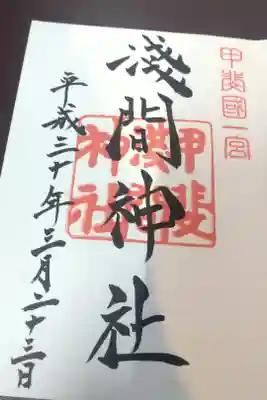 甲斐國一宮
淺間神社
甲斐淺間神社
平成三十年三月二十三日